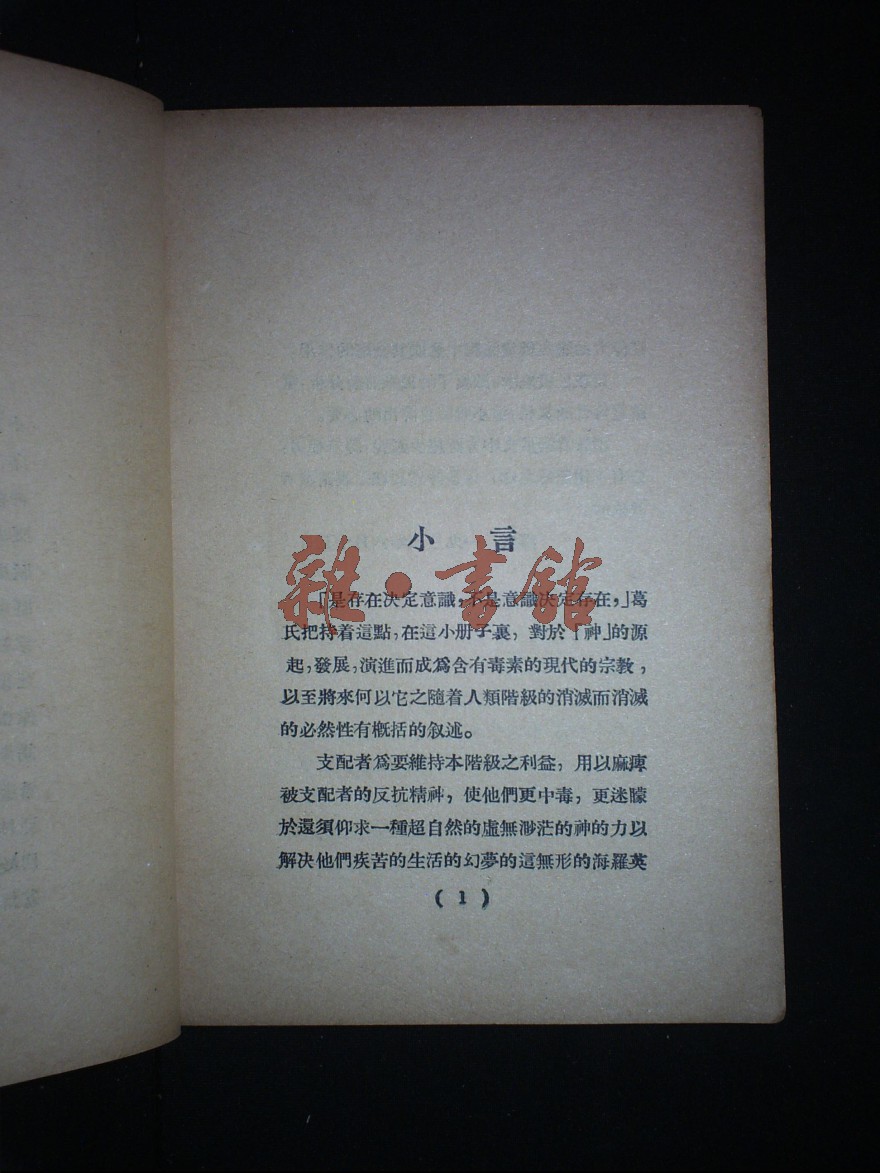 小言
「是存在決定意識，不是意識決定存在，」葛
氏把持着這點，在這小册子裏，對於「神」的源
起，發展，演進而成爲含有毒素的現代的宗教，
以至將來何以它之隨着人類階級的消滅而消滅
的必然性有概括的叙述。
支配者爲要維持本階級之利益，用以麻痺
被支配者的反抗精神，使他們更中毒，更迷矇
於還須仰求一種超自然的虛無渺茫的神的力以
解決他們疾苦的生活的幻夢的這無形的海羅英
(1)
雜·書館